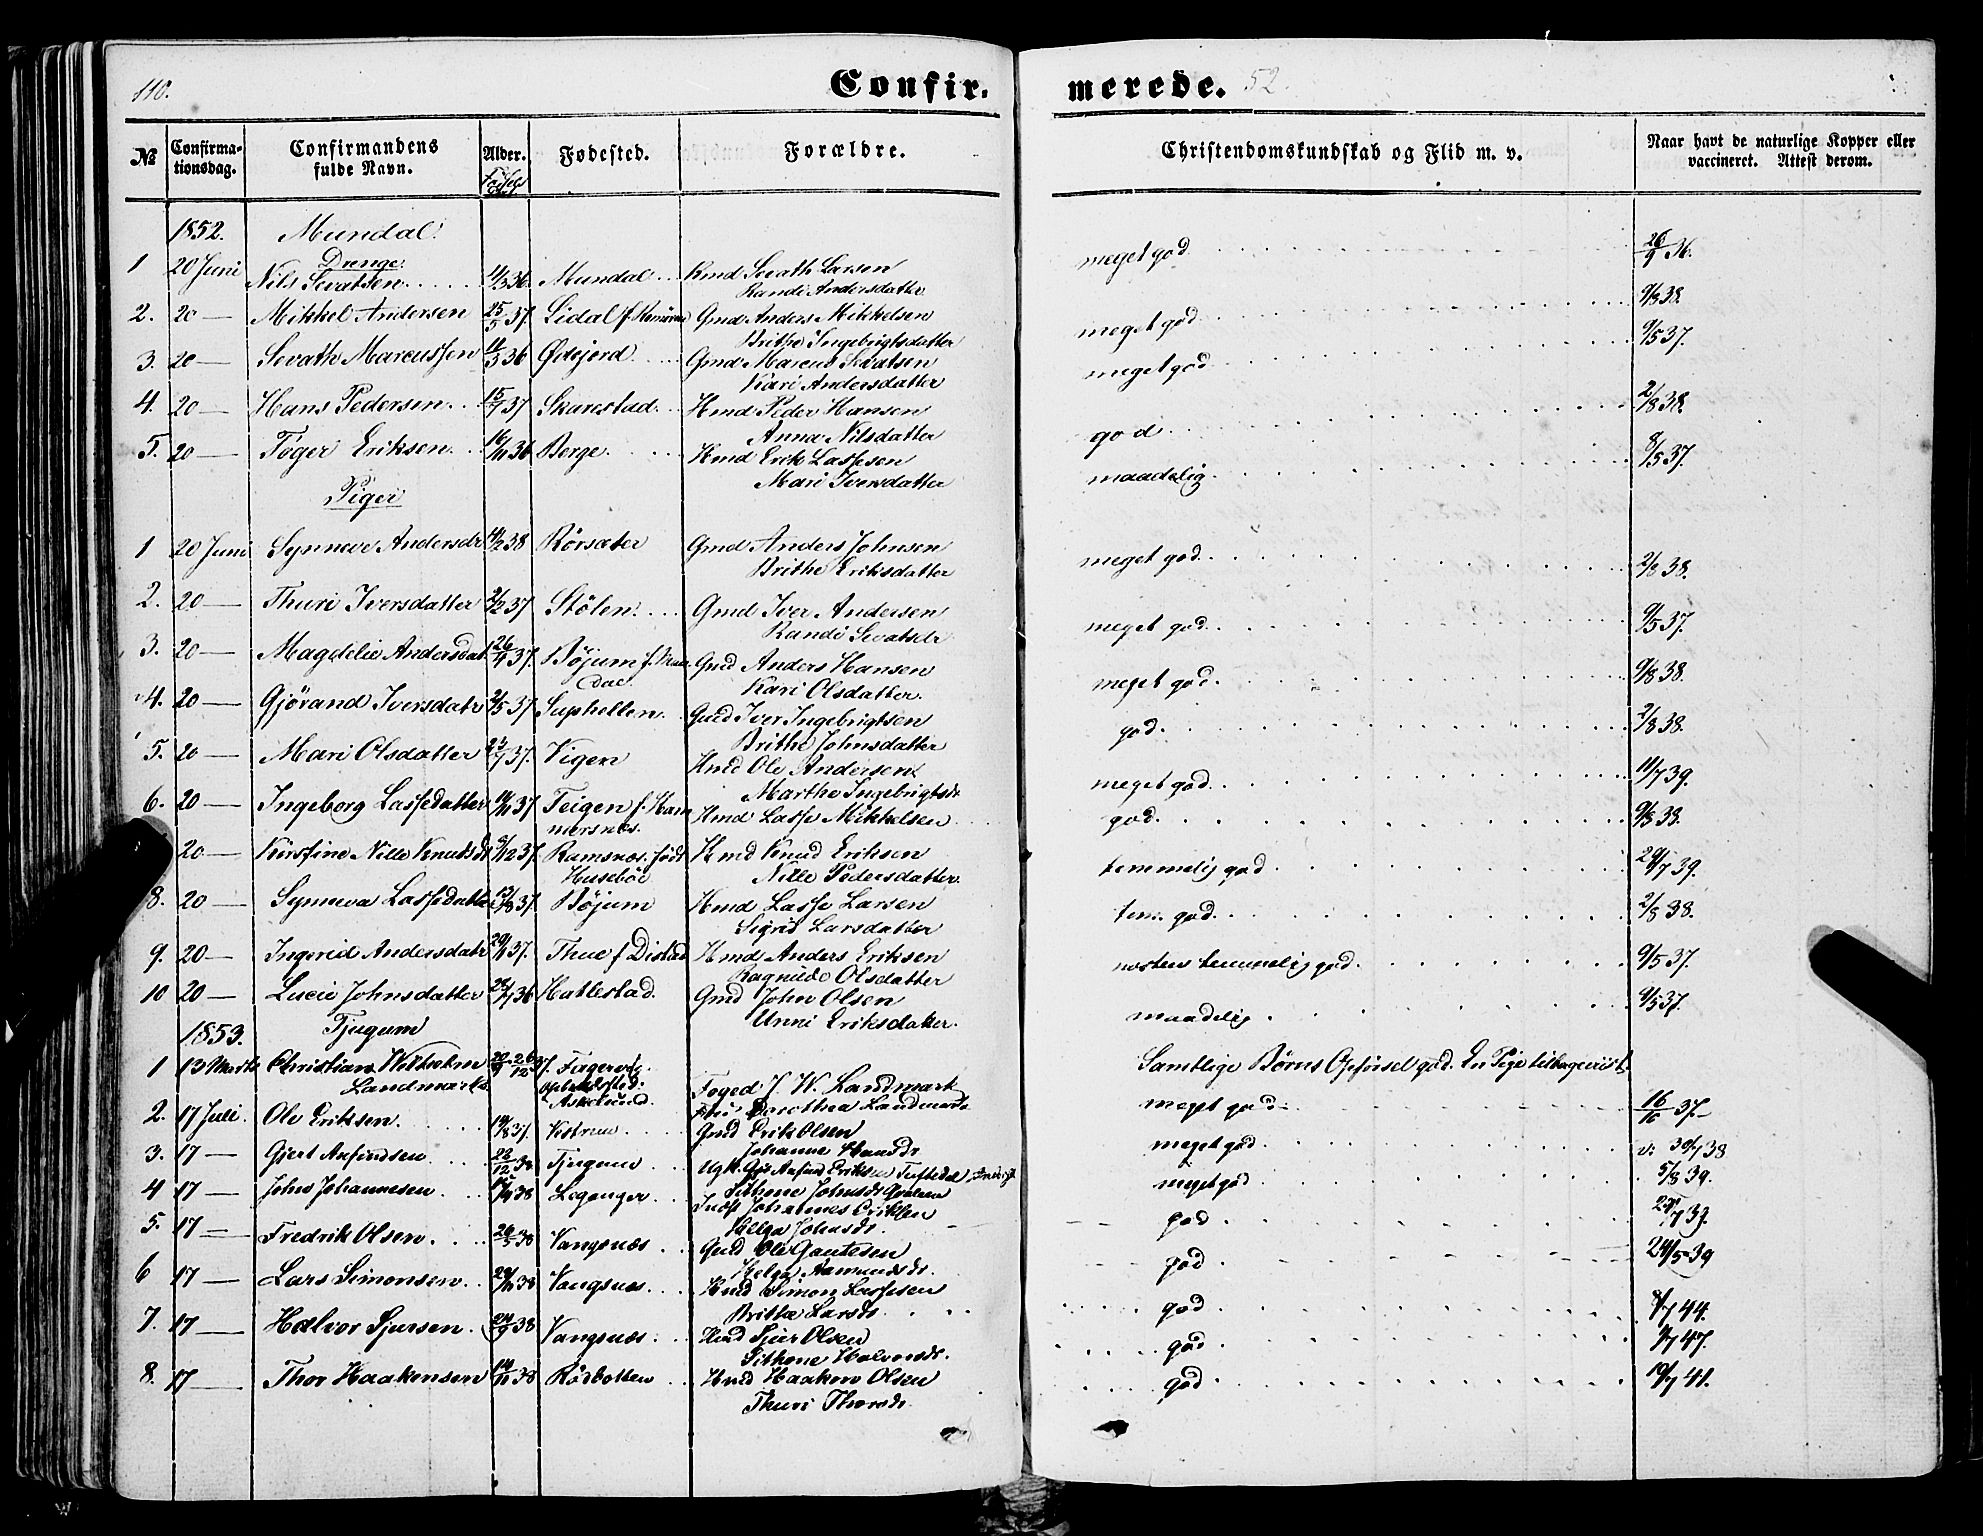 110.
Confirmerede. 52.
№ Confirmationsdag. Confirmandens fulde Navn. Alder. Fødested. Forældre. Christendomskundskab og Flid m. v. Naar havt de naturlige Kopper eller vaccineret. Attest derom.
1852. Mundal.
Drenge.
1 20 Juni Nils Sevatsen 36 Mundal Kmd Sevath Larsen meget god 26/9 36.
Randi Andersdatter
2. 20 — Mikkel Andersen 25/5 37. Lidal f. Gmd Anders Mikkelsen meget god 9/8 38.
Brithe Ingebrigtsdatter
3. 20 — Sevath Marcussen 11/3 36 Ødejord Gmd Marcus Sevatsen meget god 9/5 37.
Kari Andersdatter
4. 20 — Hans Pedersen 15/7 37 Skarestad Hmd Peder Hansen god 2/8 38.
Anna Nilsdatter
5. 20 — Føger Eriksen 16/11 36 Berge Hmd Erik Lassesen maadelig 8/5 37.
Mari Iversdatter
Piger
1 20 Juni Synneve Andersdr 4/2 38 Rörsæter Gmd Anders Johnsen meget god 2/8 38.
Brithe Eriksdatter
2. 20 — Thuri Iversdatter 2/2 37 Stölen Gmd Iver Andersen meget god 9/5 37.
Randi Sevatsdr
3. 20 — Magdelie Andersdat 26/4 37. Böjum f. Mundal Gmd Anders Hansen meget god 9/8 38.
Kari Olsdatter
4. 20 — Gjörand Iversdatr 2/5 37 Suphellen Gmd Iver Ingebrigtsen god 2/8 38.
Brithe Johnsdatter
5. 20 — Mari Olsdatter 37. Vigen Hmd Ole Andersen meget god 11/7 39.
Marthe Ingebrigtsdr
6. 20 — Ingeborg Lassedatter 37 Teigen f. Hammersnæs Hmd Lasse Mikkelsen god 9/8 38.
20 — Kirstine Nille Knudsdr 37. Ramsnæs. født Husebøe Hmd Knud Eriksen temmelig god 29/7 39.
Nille Pedersdatter
8. 20 — Synneva Lassedatter 13/8 37. Böjum Hmd Lasse Larsen tem. god 2/8 38.
Sigrid Larsdatter
9. 20 — Ingerid Andersdatr 37. Thue f Distad Hmd Anders Eriksen næsten temmelig god 9/5 37.
Ragnilde Olsdatter
10 20 — Lucie Johnsdatter 36 Hatlestad. Gmd John Olsen maadelig 9/5 37.
Unni Eriksdatter
1853. Tjugum
Samtlige Börns Opførsel god. En Pige tilbageviist
1 13 Marts Christian Wilhelm Landmark 37. opholdssted: Askelund. Foged J. W. Landmark meget god 16/10 37
Dorothea Landmark
2. 17 Juli. Ole Eriksen. 19/8 37. Vetrun Gmd Erik Olsen meget god 38
Johanne Hansdr
3. 17 — Gjert Anfindsen 28/12 38 Tjugum Anfind Eriksen Tuftedal meget god 5/8 39.
Sithone Johnsdr
4 17 — John Johannesen 38 Leganger Johannes Eriksen god 39.
Helga Johnsdr.
5. 17 — Fredrik Olsen. 26/5 38 Vangsnæs Gmd Ole Gautesen god 24/5 39
Helga Aamundsdr.
6 17 — Lars Simonsen 38 Vangsnæs Hmd Simon Lassesen god 44.
Britha Larsdr.
7. 17 — Halvor Sjursen 24/9 38 Vangsnæs Hmd Sjur Olsen god 47.
Sithone Halvorsdr.
8. 17 — Thor Haakensen 14/11 38 Rödbotten Hmd Haakon Olsen god 19/7 41.
Thuri Thorsdr.